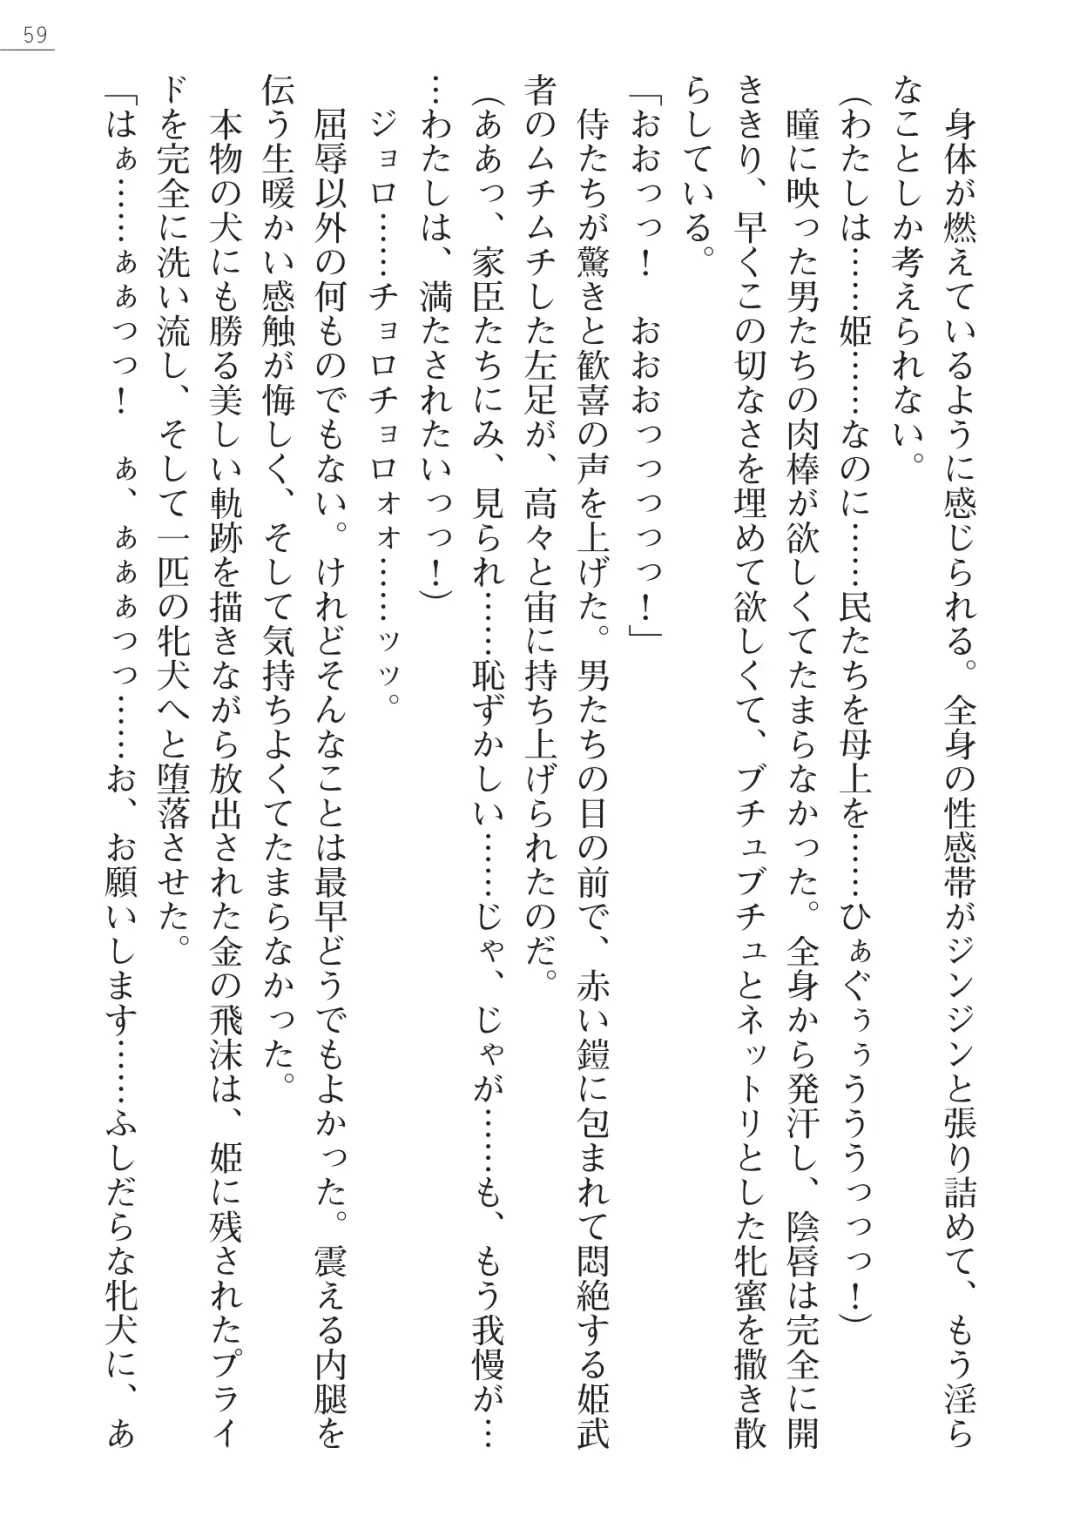 59
身体が燃えているように感じられる。全身の性感帯がジンジンと張り詰めて、もう淫ら
なことしか考えられない。
(わたしは……姫……なのに……民たちを母上を……ひぁぐぅぅうううっっっ！)
瞳に映った男たちの肉棒が欲しくてたまらなかった。全身から発汗し、陰唇は完全に開
ききり、早くこの切なさを埋めて欲しくて、ブチュブチュとネットリとした牝蜜を撒き散
らしている。
「おおっっ！　おおおっっっっっ！」
侍たちが驚きと歓喜の声を上げた。男たちの目の前で、赤い鎧に包まれて悶絶する姫武
者のムチムチした左足が、高々と宙に持ち上げられたのだ。
(ああっ、家臣たちにみ、見られ……恥ずかしい……じゃ、じゃが……も、もう我慢が…
…わたしは、満たされたいっっ！)
ジョロ……チョロチョロォォ……ッッ。
屈辱以外の何ものでもない。けれどそんなことは最早どうでもよかった。震える内腿を
伝う生暖かい感触が悔しく、そして気持ちよくてたまらなかった。
本物の犬にも勝る美しい軌跡を描きながら放出された金の飛沫は、姫に残されたプライ
ドを完全に洗い流し、そして一匹の牝犬へと堕落させた。
「はぁ……ぁぁっっ！　ぁ、ぁぁぁっっ……お、お願いします……ふしだらな牝犬に、あ